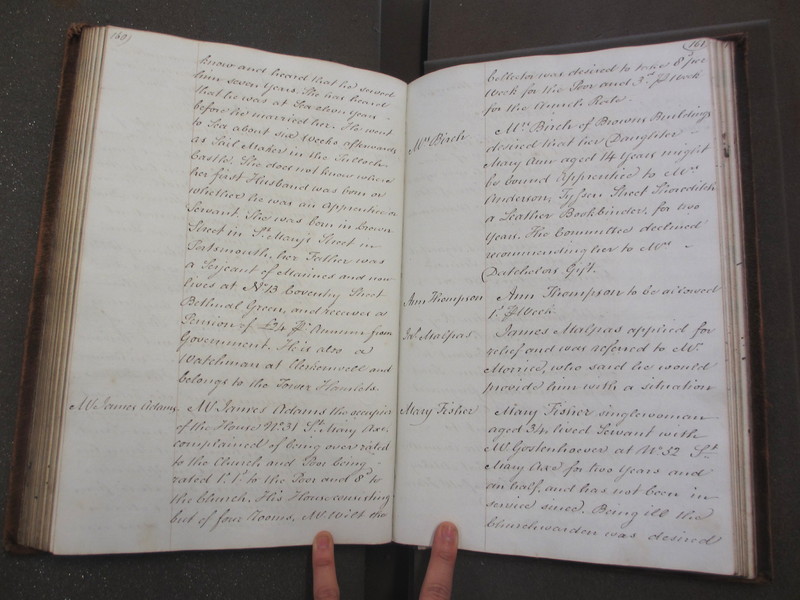 160)
know and heard that he served
him seven Years. She has heard
that he was at Sea eleven Years
before he married her. He went
to Sea about six Weeks afterwards
as Sail Maker in the Tulloch
Castle. She does not know where
her first Husband was born or
whether he was an Apprentice or
Servant. She was born in Crown
Street in St. Mary's Street in
Portsmouth, her Father was
a Serjeant of Marines and now
lives at No. 13 Coventry Street
Bethnal Green, and receives a
Pension of £24 Pr. Annum from
Government. He is also a
Watchman at Clerkenwell and
belongs to the Tower Hamlets.
Mr. James Adams
Mr. James Adams the occupier
of the House No. 31 St. Mary Axe
complained of being over rated
to the Church and Poor being
rated 1s. 1d. to the Poor and 8d. to
the Church. His House consisting
but of four Rooms, Mr. Wilt the
(161
Collector was desired to take 8d. per
Week for the Poor and 3d. Pr. Week
for the Church Rate.
Mrs. Birch
Mrs. Birch of Browns Buildings
desired that her Daughter
Mary Ann aged 14 Years might
be bound Apprentice to Mrs.
Anderson, Tysson Street Shoreditch
a Leather Bookbinder, for two
Years. The Committee declined
recommending her to Mrs.
Datchelors Gift.
Ann Thompson
Ann Thompson to be allowed
1s. Pr. Week.
Jas. Malpas
James Malpas applied for
relief and was referred to Mr.
Morrice, who said he would
provide him with a situation
Mary Fisher
Mary Fisher singlewoman
aged 34, lived Servant with
Mr. Gostenhover at No. 52 St.
Mary Axe for two Years and
an half, and has not been in
service since. Being ill the
Churchwarden was desired